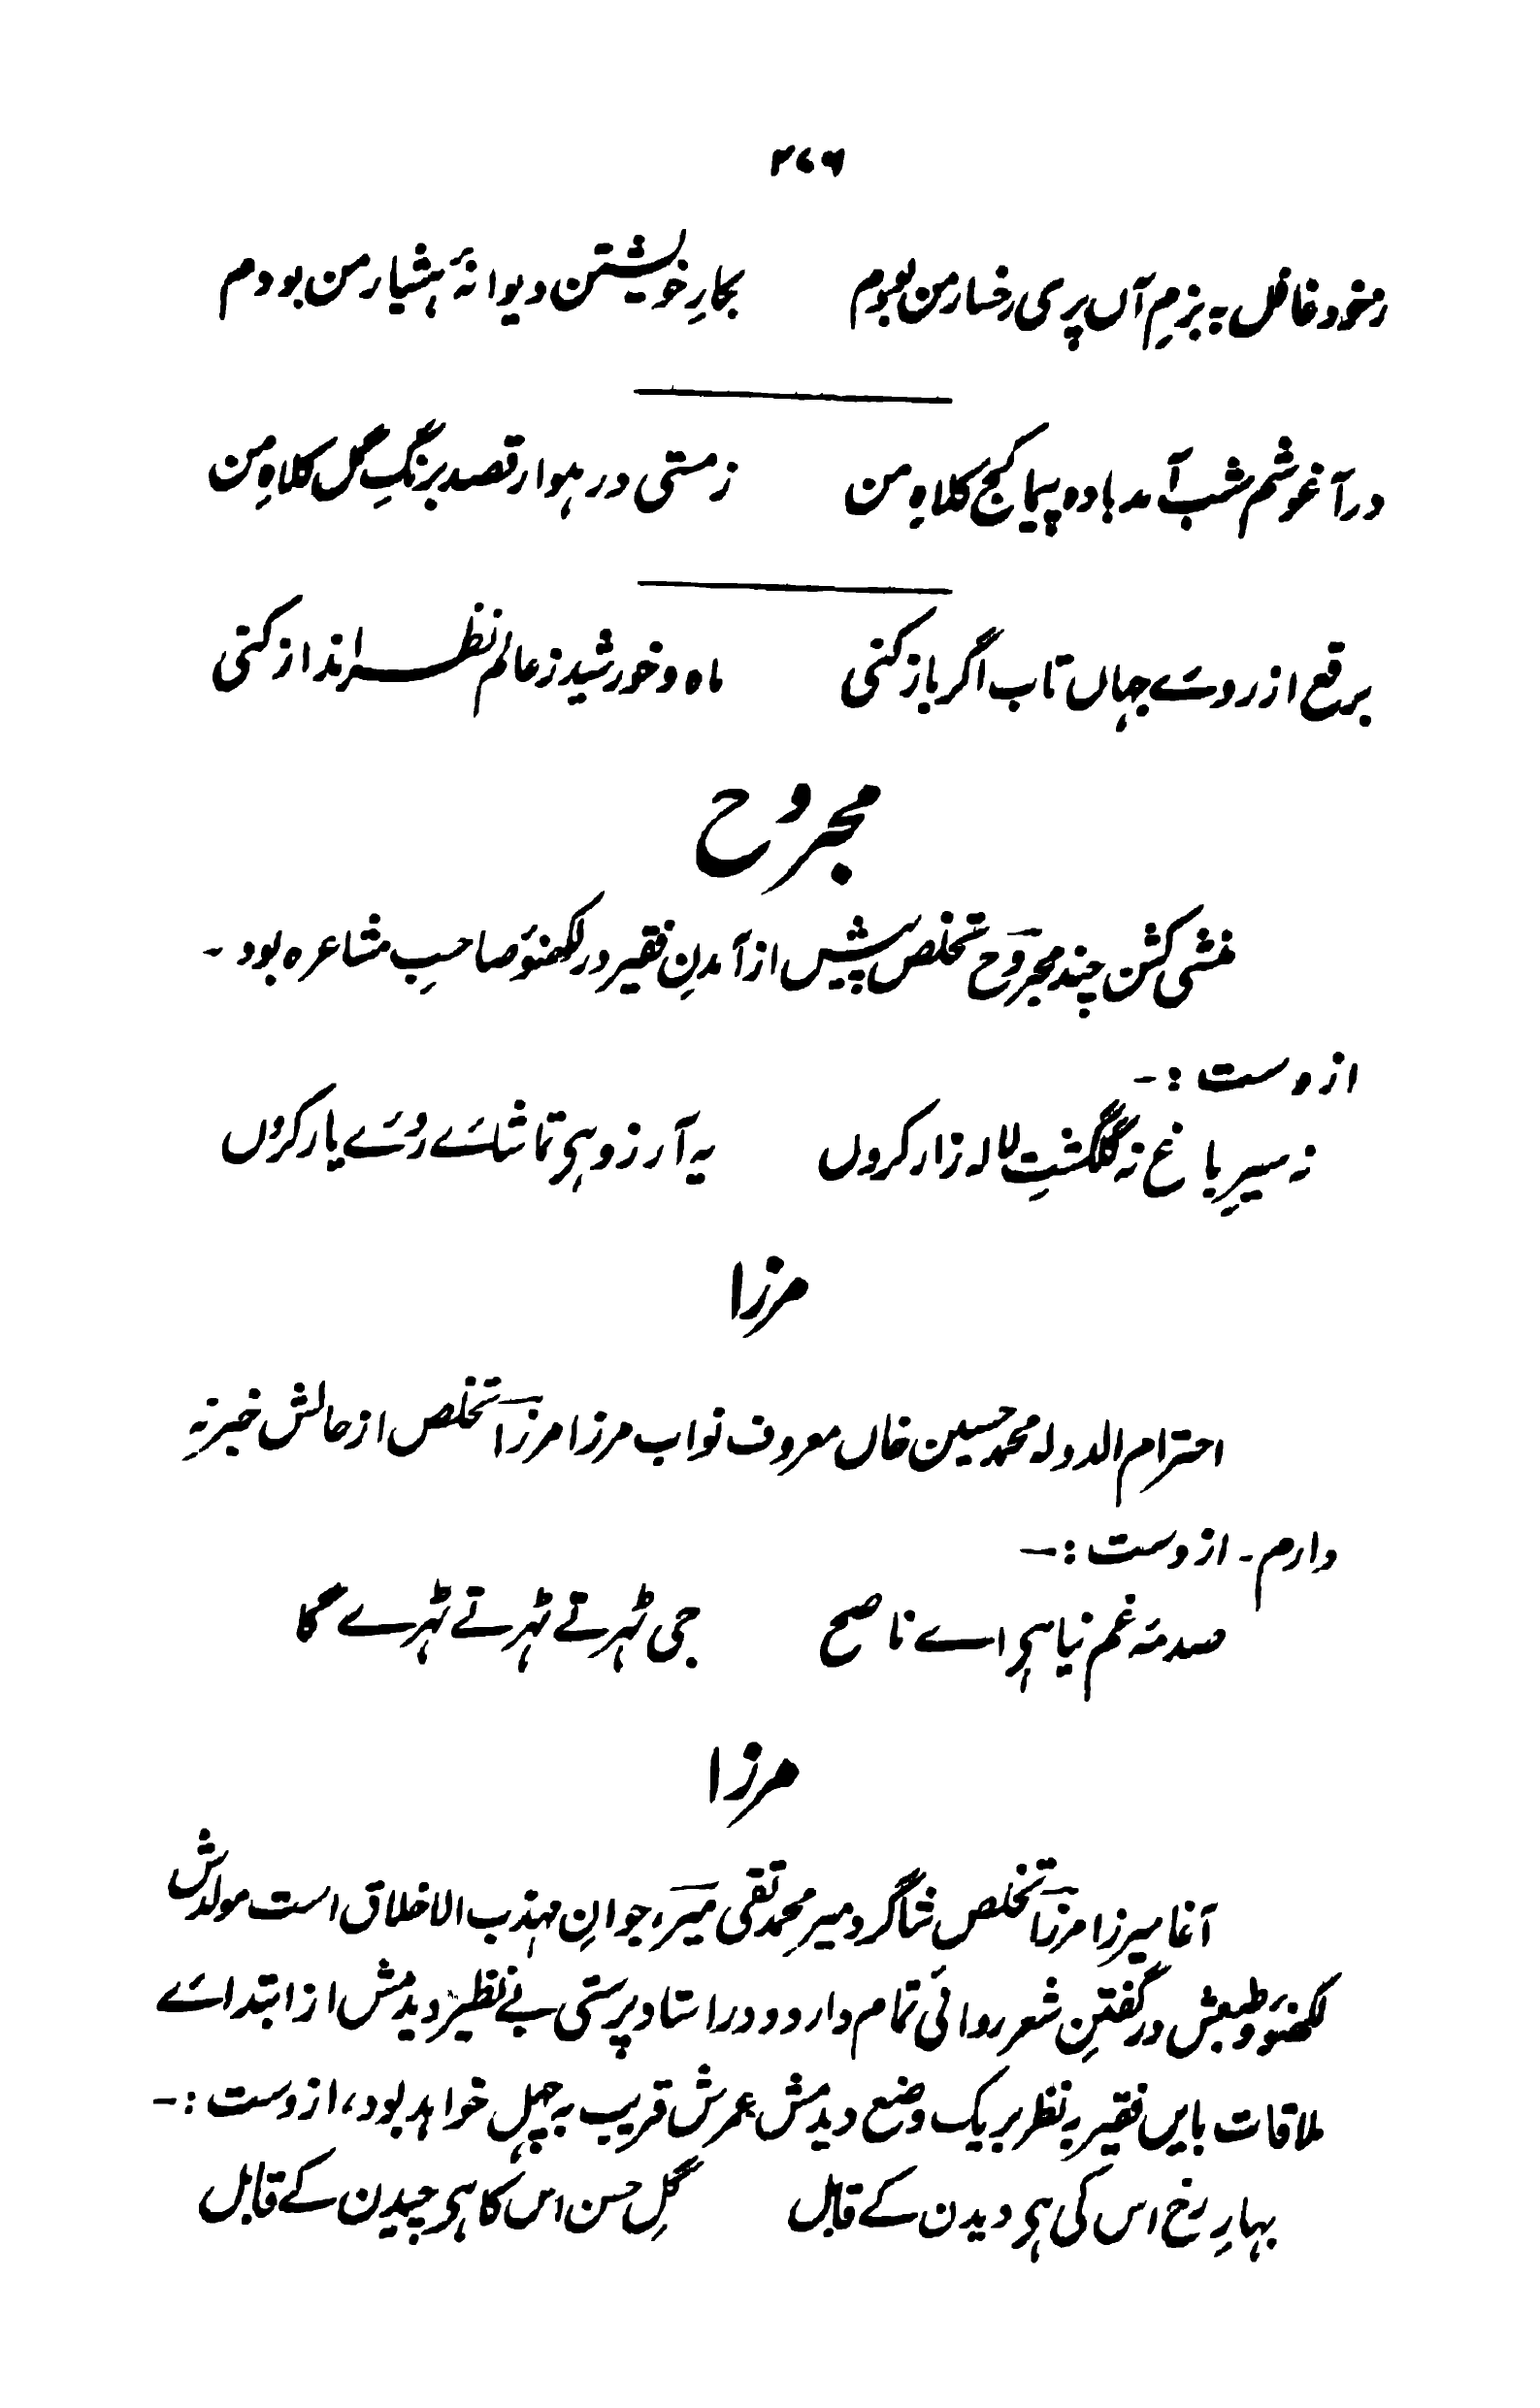 ۲۷۶
زخود غافل بہ بزمِ آں پری رخسار من بودم بکارِ خویشتن دیوانۂ ہشیار من بودم
در آغوشم شب آمد بادہ پیما کج کلاہِ من زمستی در ہوا رقصد برنگِ گل کلاہِ من
برقع از روئے جہاں تاب اگر باز کنی ماہ و خورشید ز عالم نظر انداز کنی
مجروح
منشی کشن چند مجروح تخلص پیش از آمدنِ فقیر در لکھنؤ صاحبِ مشاعرہ بود ۔
ازوست :۔
نہ سیرِ باغ نہ گلگشتِ لالہ زار کروں یہ آرزو ہی تماشائے روئے یار کروں
مرزا
احترام الدولہ محمد حسین خاں معروف نواب مرزا مرزا تخلص از حالش خبر نہ
دارم ۔ ازوست :۔
صدمۂ غم نیا ہی اے ناصح جی ٹہرتے ٹہرتے ٹہرے گا
مرزا
آغا میرزا مرزا تخلص شاگرد میر محمد تقی میر، جوانِ مہذب الاخلاق است مولدش
لکھنؤ و طبعش در گفتنِ شعر روانی تمام دارد و در استاد پرستی بے نظیر دیدمش از ابتدائے
ملاقات بایں فقیر بہ نظر بر یک وضع دیدمش عمرش قریب بہ چہل خواہد بود، ازوست :۔
بہارِ رخ اس کی ہی دیدن کے قابل گلِ حسن اس کا ہی چیدن کے قابل